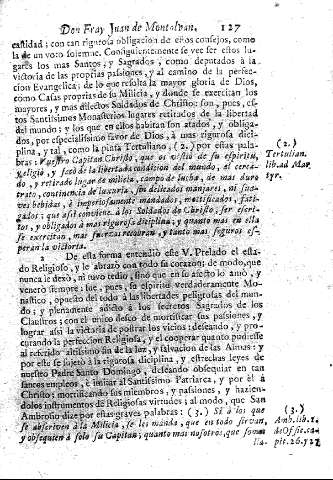 Don Fray Juan de Montalban. 127
castidad; con tan rigurosa obligacion de èstos consejos, como
la de un voto solemne. Consiguientemente se vèe ser estos lu-
gares los mas Santos, y Sagrados, como deputados à la
victoria de las proprias passiones, y al camino de la perfec-
cion Evangelica; de lo que resulta la mayor gloria de Dios,
como Casas proprias de su Milicia, y donde se exercitan los
mayores, y mas selectos Soldados de Christo: son, pues, es-
tos Santissimos Monasterios lugares retirados de la libertad
del mundo; y los que en ellos habitan son atados, y obliga-
dos, por especialissimo favor de Dios, à mas rigurosa disci-
plina, y tal, como la pinta Tertuliano, (2.) por estas pala-
bras: Nuestro Capitan Christo, que os vistiò de su espiritu,
y eligiò, y sacò de la libertad condicion del mundo, el cerca-
do, y retirado lugar de milicia, campo de lucha, de mas duro
trato, continencia de luxuria, sin delicados manjares, ni sua-
ves bebidas, è ingeniosamente mandados, mortificados, fati-
gados: que assi conviene à los Soldados de Christo, ser esfor-
tos, y obligados à mas rigurosa disciplina; y quanto mas en ella
se exercitan, mas fuerzas recobran, y tanto mas seguros es-
peran la victoria.
(2.)
Tertulian.
lib. ad Mar
tyr.
2 De esta forma entendiò este V. Prelado el esta-
do Religioso, y le abrazò con todo su corazon; de modo, que
nunca le dexò, ni tuvo tedio, sino que en su afecto lo amò, y
venerò siempre: fue, pues, su espiritu verdaderamente Mo-
nastico, opuesto del todo à las libertades peligrosas del mun-
do; y plenamente sujeto à los secretos Sagrados de los
Claustros; con el unico deseo de mortificar sus passiones, y
lograr assi la victoria de postrar los vicios: deseando, y pro-
curando la perfeccion Religiosa, y el cooperar quanto pudiesse
al referido altissimo fin de la luz, y salvacion de las Almas: y
por este se sujetò à la rigurosa disciplina, y estrechas leyes de
nuestro Padre Santo Domingo, deseando obsequiar en tan
santos empleos, è imitar al Santissimo Patriarca, y por èl à
Christo; mortificando sus miembros, y passiones, y hazien-
dolos instrumentos de Religiosas virtudes; al modo, que San
Ambrosio dize por estas graves palabras: (3.) Si à los que
se abscriven à la Milicia, se les manda, que en todo sirvan,
y obsequien à solo su Capitan; quanto mas nosotros, que somos
lla-
(3.)
Amb. lib. 1.
de Offic. ca-
pit. 26. 727